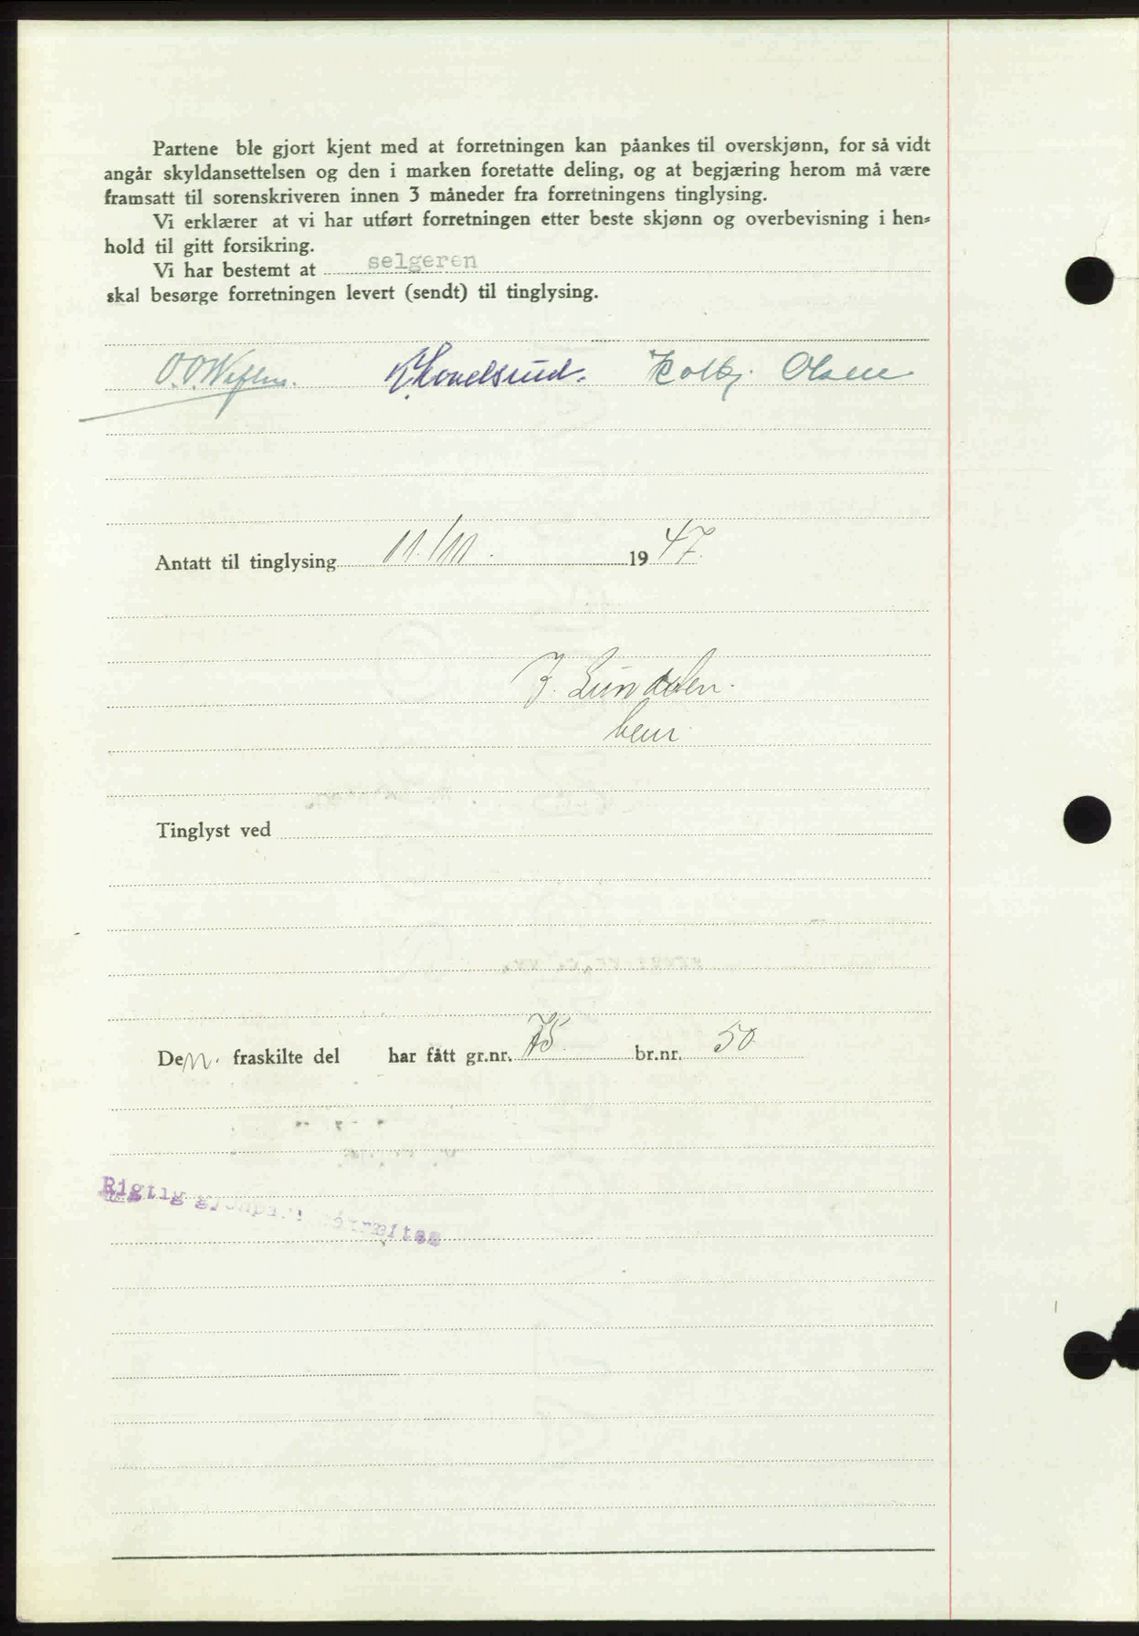 Partene ble gjort kjent med at forretningen kan påankes til overskjønn, for så vidt
angår skyldansettelsen og den i marken foretatte deling, og at begjæring herom må være
framsatt til sorenskriveren innen 3 måneder fra forretningens tinglysing.
Vi erklærer at vi har utført forretningen etter beste skjønn og overbevisning i hen-
hold til gitt forsikring.
Vi har bestemt at selgeren
skal besørge forretningen levert (sendt) til tinglysing.
Kolbj. Olsen
Antatt til tinglysing 11/11. 1947.
Tinglyst ved
Den. fraskilte del har fått gr.nr. 75 br.nr. 50
Rigtig